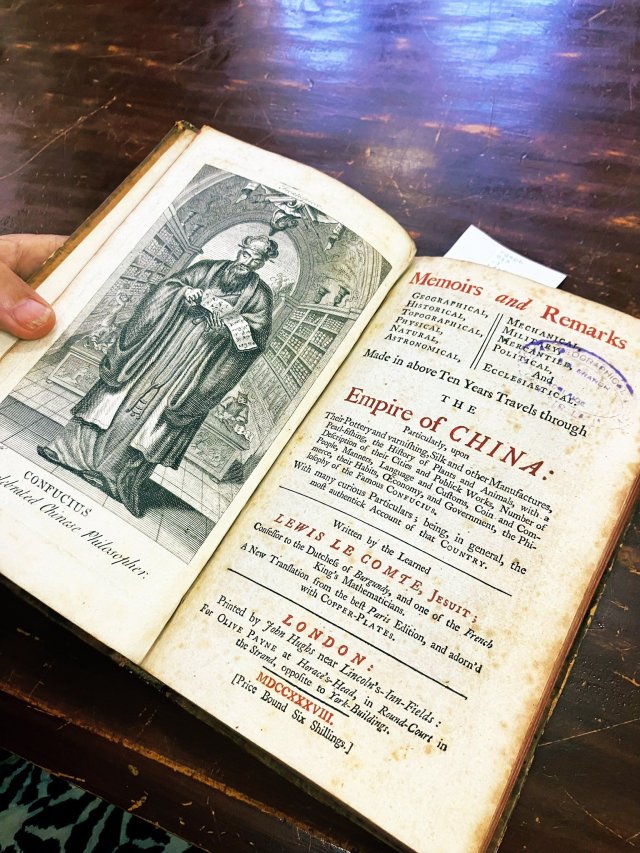 CONFUCIUS
Celebrated Chinese Philosopher.
Memoirs and Remarks
GEOGRAPHICAL,
HISTORICAL,
TOPOGRAPHICAL,
PHYSICAL,
NATURAL,
ASTRONOMICAL,
MECHANICAL,
MILITARY,
MERCANTILE,
POLITICAL,
And
ECCLESIASTICAL.
Made in above Ten Years Travels through
THE
Empire of CHINA:
Particularly, upon
Their Pottery and varnishing, Silk and other Manufactures,
Pearl-fishing, the History of Plants and Animals, with a
Description of their Cities and Publick Works, Number of
People, Manners, Language and Customs, Coin and Com-
merce, their Habits, Œconomy, and Government, the Phi-
losophy of the Famous CONFUCIUS.
With many curious Particulars; being, in general, the
most authentick Account of that COUNTRY.
Written by the Learned
LEWIS LE COMTE, JESUIT;
Confessor to the Dutchess of Burgundy, and one of the French
King's Mathematicians.
A New Translation from the best Paris Edition, and adorn'd
with COPPER-PLATES.
LONDON:
Printed by John Hughs near Lincoln's-Inn-Fields:
For OLIVE PAYNE at Horace's-Head, in Round-Court in
the Strand, opposite to York-Buildings.
MDCCXXXVIII.
[Price Bound Six Shillings.]